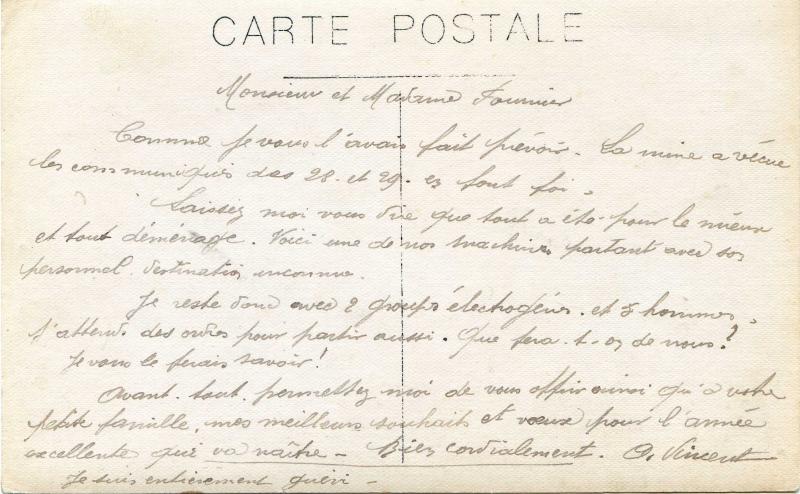 CARTE POSTALE
Monsieur et Madame Fournier
Comme je vous l'avais fait prévoir. La mine a vécue
les communiqués des 28. et 29. en font foi.
Laissez moi vous dire que tout a été pour le mieux
et tout déménage. Voici une de nos machines partant avec son
personnel. destination inconnue.
Je reste donc avec 2 groupes électrogènes. et 5 hommes,
J'attends des ordres pour partir aussi. Que fera-t-on de nous?
Je vous le ferais savoir!
Avant tout, permettez moi de vous offrir ainsi qu'à votre
petite famille, mes meilleurs souhaits et vœux pour l'année
excellente qui va naître - Bien cordialement. O. Vincent
Je suis entièrement guéri -